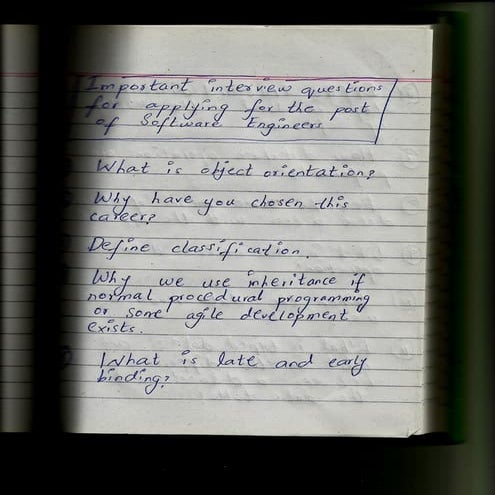 Important interview questions
for applying for the post
of Software Engineers
What is object orientation?
Why have you chosen this
career?
Define classification.
Why we use inheritance if
normal procedural programming
or some agile development
exists.
What is late and early
binding?